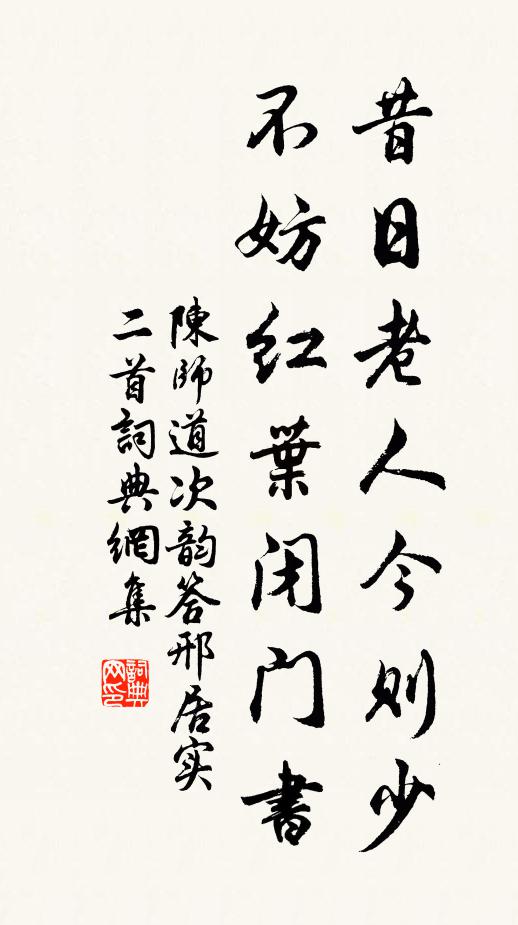 昔日老人今则少
不妨红葉闭门書
陳師道次韵答邢居实
二首詞典網集
詞典
网印